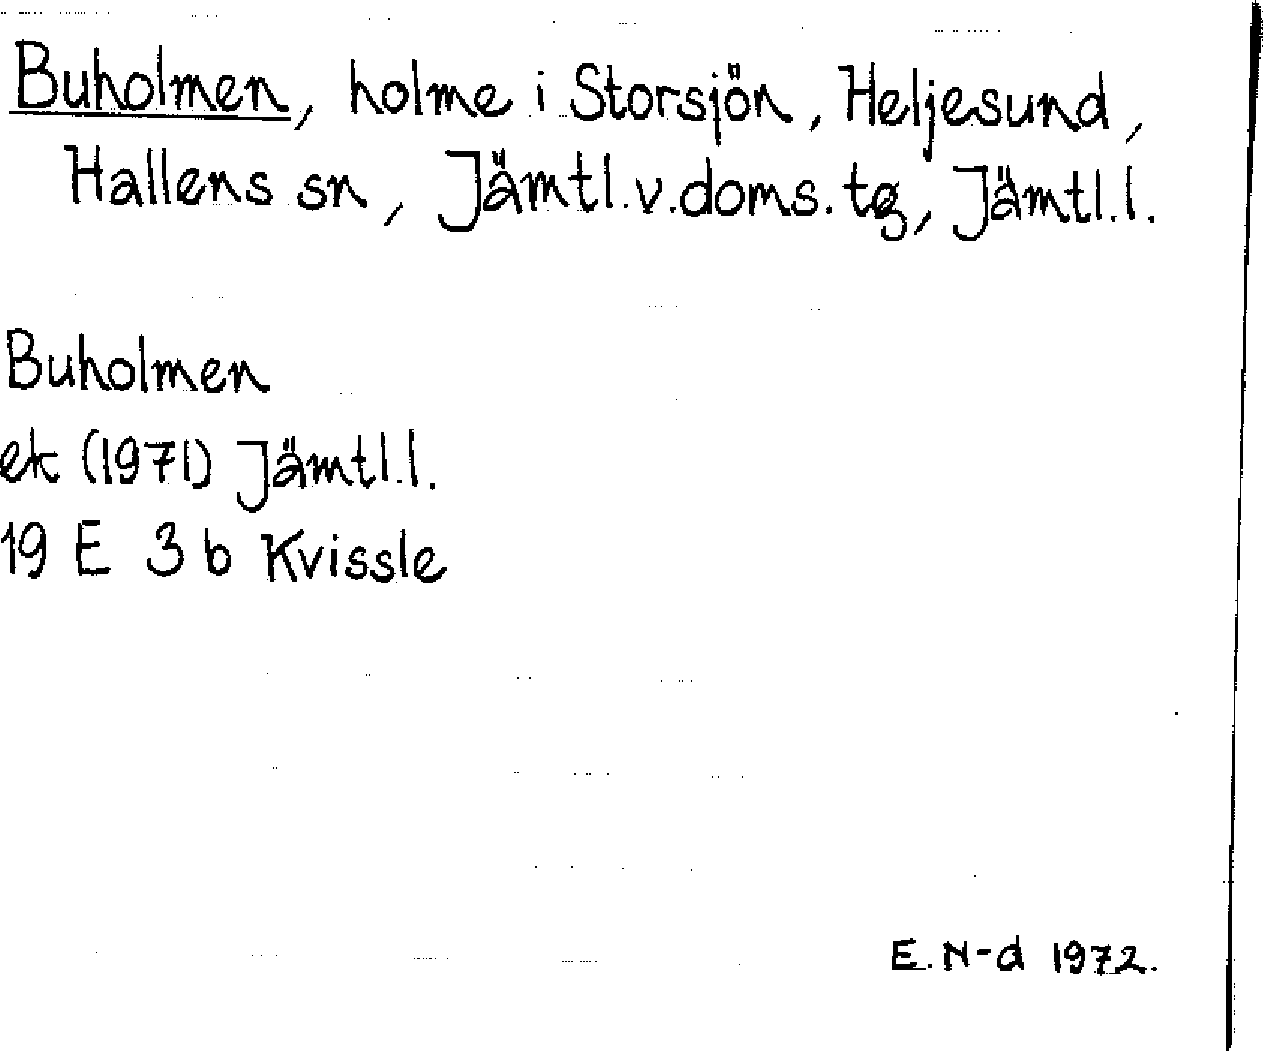 Buholmen, holme i Storsjön, Heljesund,
Hallens sn, Jämtl.v.doms.tg, Jämtl.l.
Buholmen
ek (1971) Jämtl.l.
19 E 3 b Kvissle
E. N-d 1972.